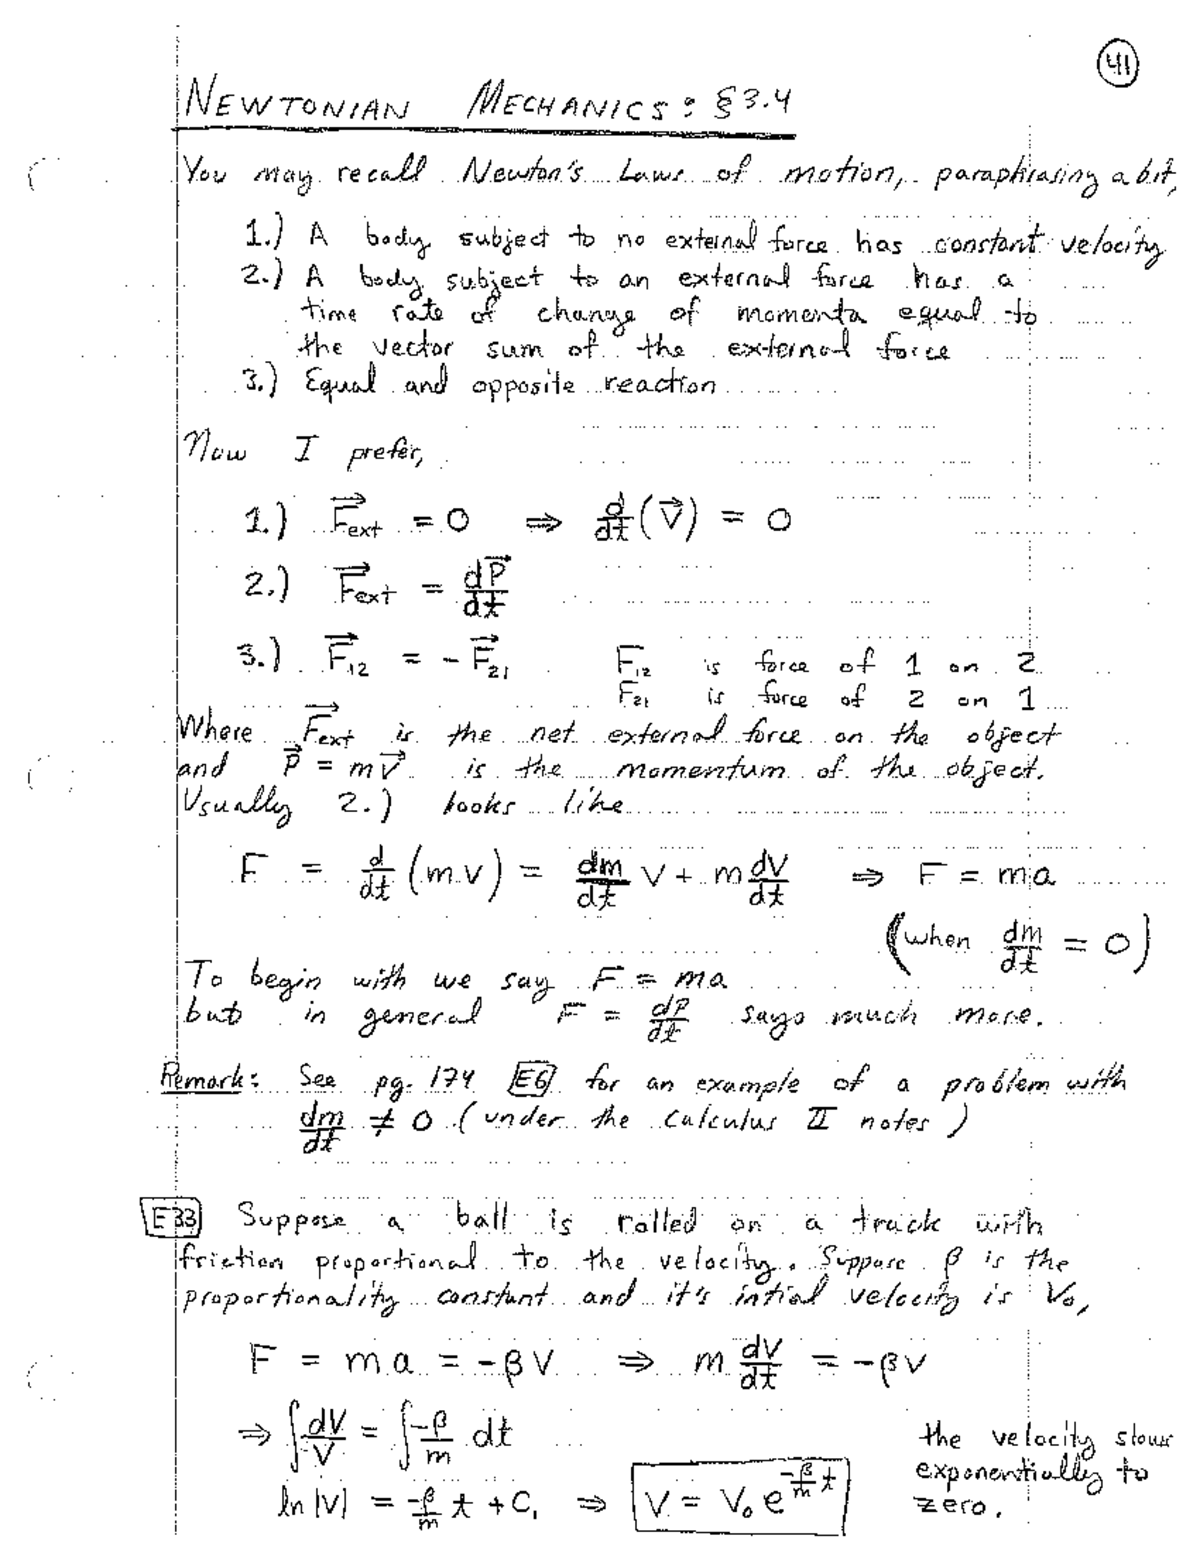 41
NEWTONIAN MECHANICS: §3.4
You may recall Newton's Laws of motion, paraphrasing a bit,
1.) A body subject to no external force has constant velocity
2.) A body subject to an external force has a
time rate of change of momenta equal to
the vector sum of the external force
3.) Equal and opposite reaction
Now I prefer,
1.) F⃗ext = 0 ⇒ d/dt (V⃗) = 0
2.) F⃗ext = dP⃗/dt
3.) F⃗12 = - F⃗21 F12 is force of 1 on 2
F21 is force of 2 on 1
Where F⃗ext is the net external force on the object
and P⃗ = mV⃗ is the momentum of the object.
Usually 2.) looks like
F = d/dt (mv) = dm/dt V + m dV/dt ⇒ F = ma
(when dm/dt = 0)
To begin with we say F = ma
but in general F = dP/dt says much more.
Remark: See pg. 174 E6 for an example of a problem with
dm/dt ≠ 0 (under the Calculus II notes)
E33 Suppose a ball is rolled on a track with
friction proportional to the velocity. Suppose β is the
proportionality constant and it's intial velocity is V₀,
F = ma = -βV ⇒ m dV/dt = -βV
⇒ ∫ dV/V = ∫ -β/m dt
the velocity slows
exponentially to
zero.
ln|V| = -β/m t + C₁ ⇒ V = V₀ e^(-β/m t)